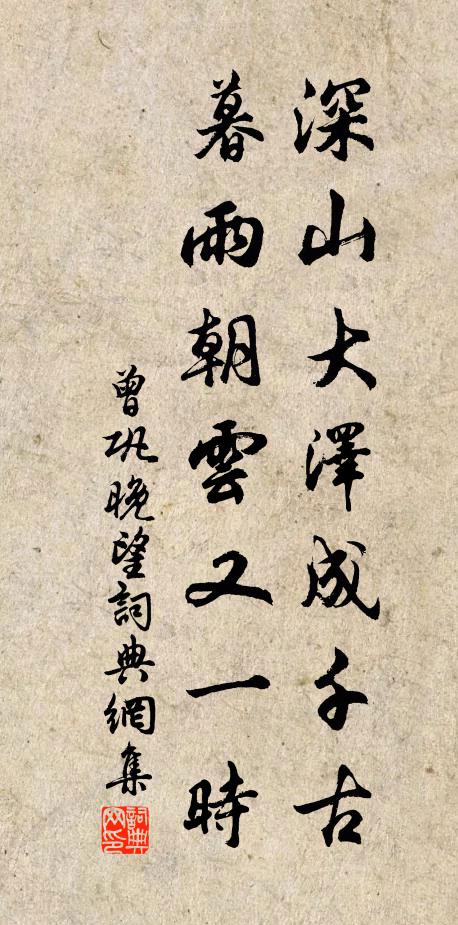 深山大澤成千古
暮雨朝雲又一時
曾巩晚望詞典網集
詞典网印